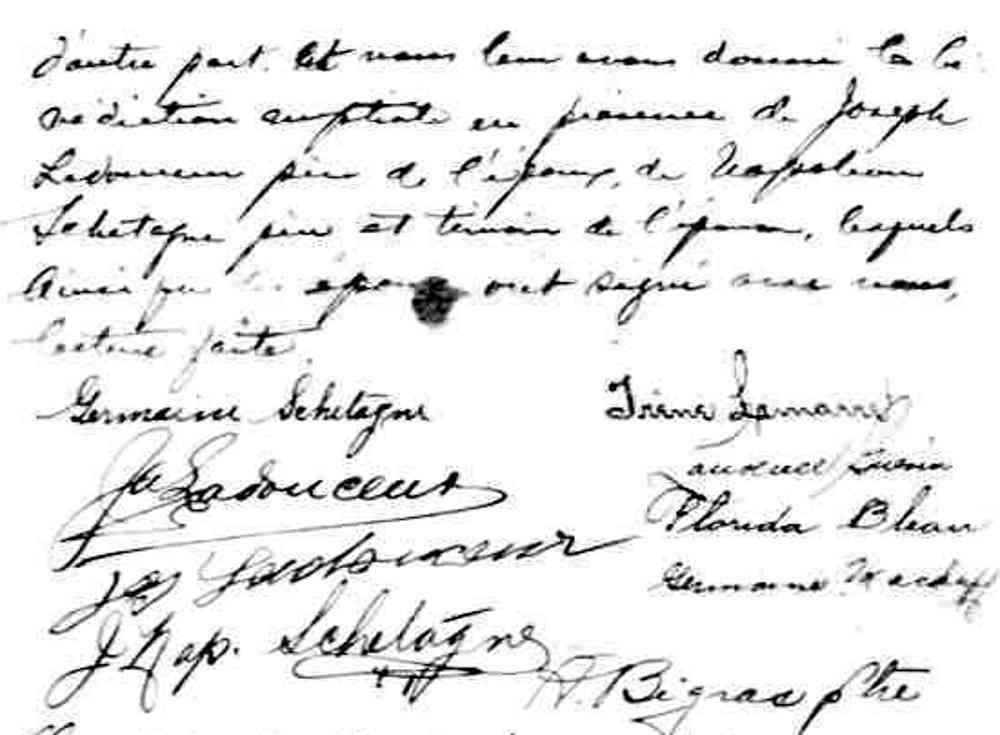 d'autre part. Et nous leur avons donné la bé-
nédiction nuptiale en présence de Joseph
Ladouceur père de l'époux, de Napoléon
Schetagne père et témoin de l'épouse, lesquels
Ainsi que les époux ont signé avec nous,
lecture faite.
Germaine Schetagne Irène Lamarre
Jos Ladouceur Laurence Guérin
Jos Ladouceur Florida Bleau
J Nap. Schetagne Germaine
A. Bigras ptre